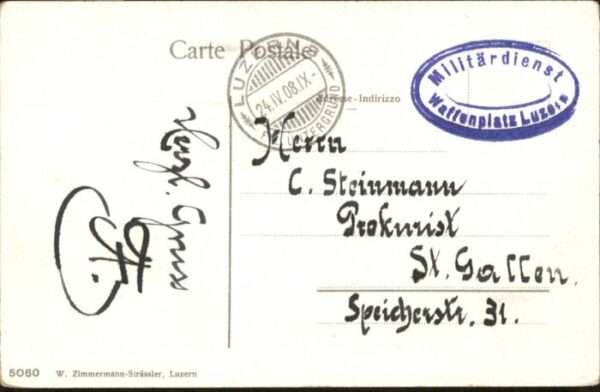 Carte Postale
LUZERN 2
24.IV.08.IX-
LUZERGRUND
Militärdienst
Waffenplatz Luzern
Adresse-Indirizzo
Herrn
C. Steinmann
Prokurist
St. Gallen.
Speicherstr. 31.
Herzl. Gruss
5060 W. Zimmermann-Strässler, Luzern